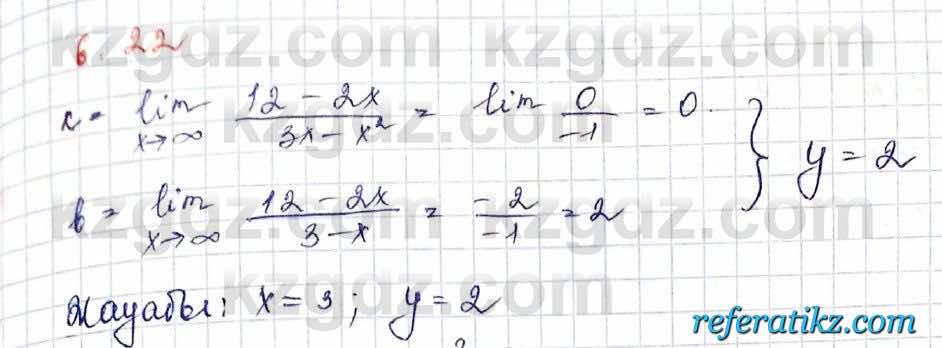 6.22
k = lim x→∞ (12 - 2x)/(3x - x²) = lim 0/-1 = 0.
b = lim x→∞ (12 - 2x)/(3 - x) = -2/-1 = 2
} y = 2
Жауабы: x = 3; y = 2
kzgdz.com kzgdz.com
kzgdz.com kzgdz.com
kzgdz.com kzgdz.com
referatikz.com